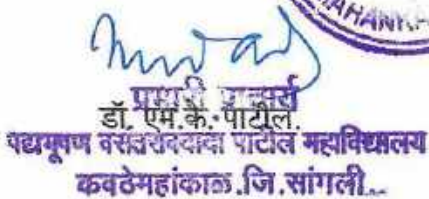 MAHANK
प्रभारी प्राचार्य
डॉ. एम.के. पाटील.
पद्मभूषण वसंतरावदादा पाटील महाविद्यालय
कवठेमहांकाळ.जि.सांगली..